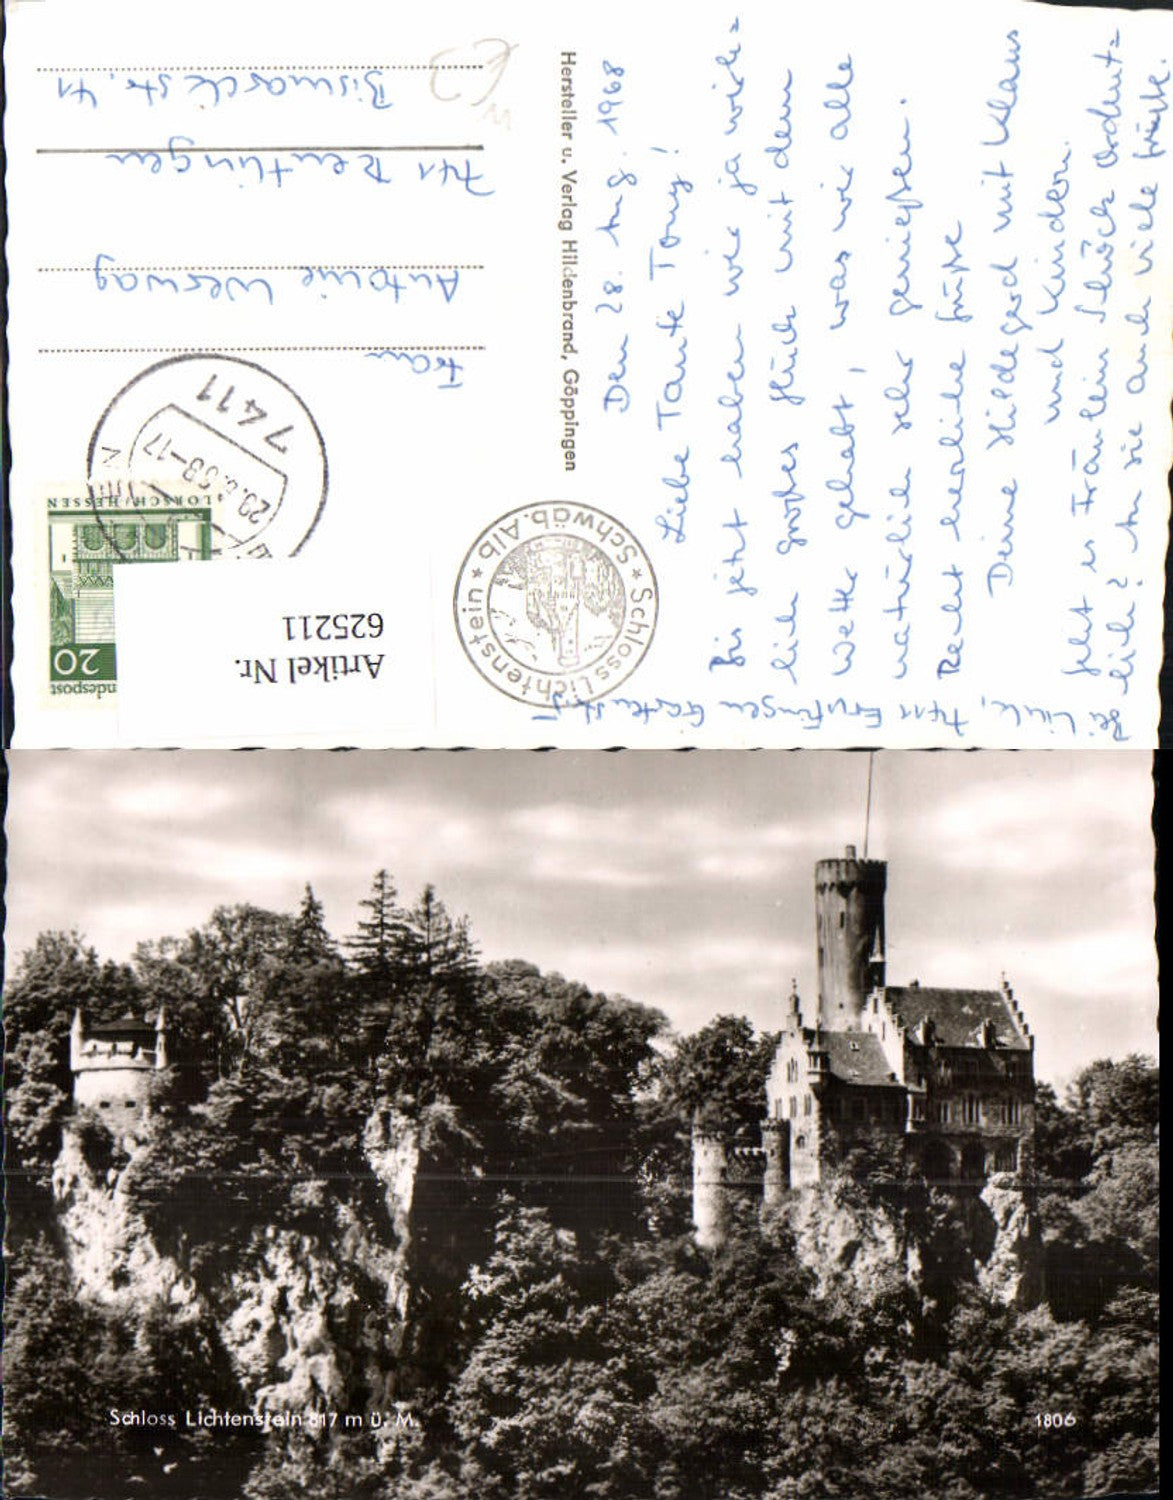 Den 28. Aug. 1968
Liebe Tante Tony!
Bis jetzt haben wir ja wirk=
lich großes Glück mit dem
Wetter gehabt, was wir alle
natürlich sehr genießen.
Recht herzliche Grüße
Deine Hildegard mit Klaus
und Kindern.
Geht es Fräulein Schöck ordent=
lich? An sie auch viele Grüße.
Hersteller u. Verlag Hildenbrand, Göppingen
Schloss Lichtenstein * Schwäb. Alb *
Bundespost
20
LORSCH/HESSEN
7411
29.8.68-17
Artikel Nr.
625211
Frau
Antonie
741 Reutlingen
Bismarckstr. 41
Schloss Lichtenstein 817 m ü. M.
1806